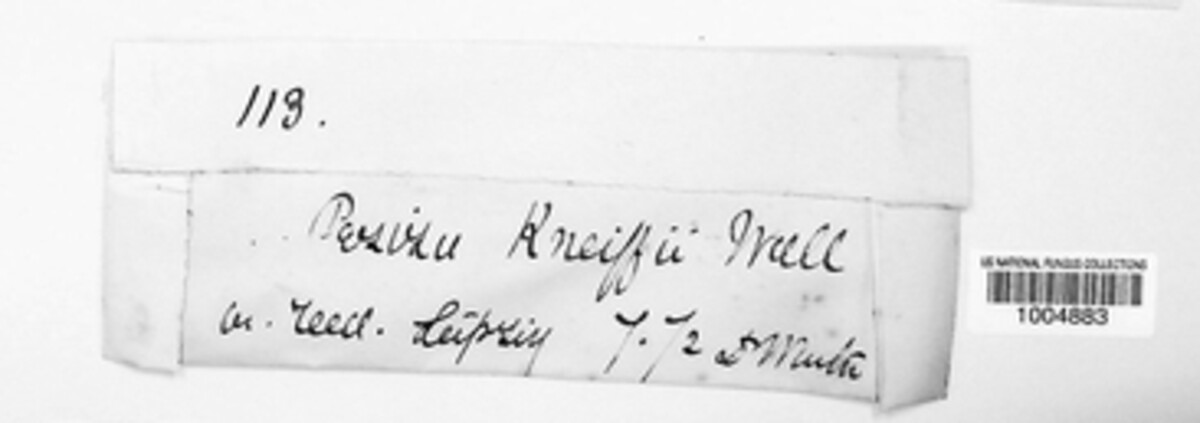 113.
Peziza Kneiffii Wall
Leipzig 7.72
US NATIONAL FUNGUS COLLECTIONS
1004883